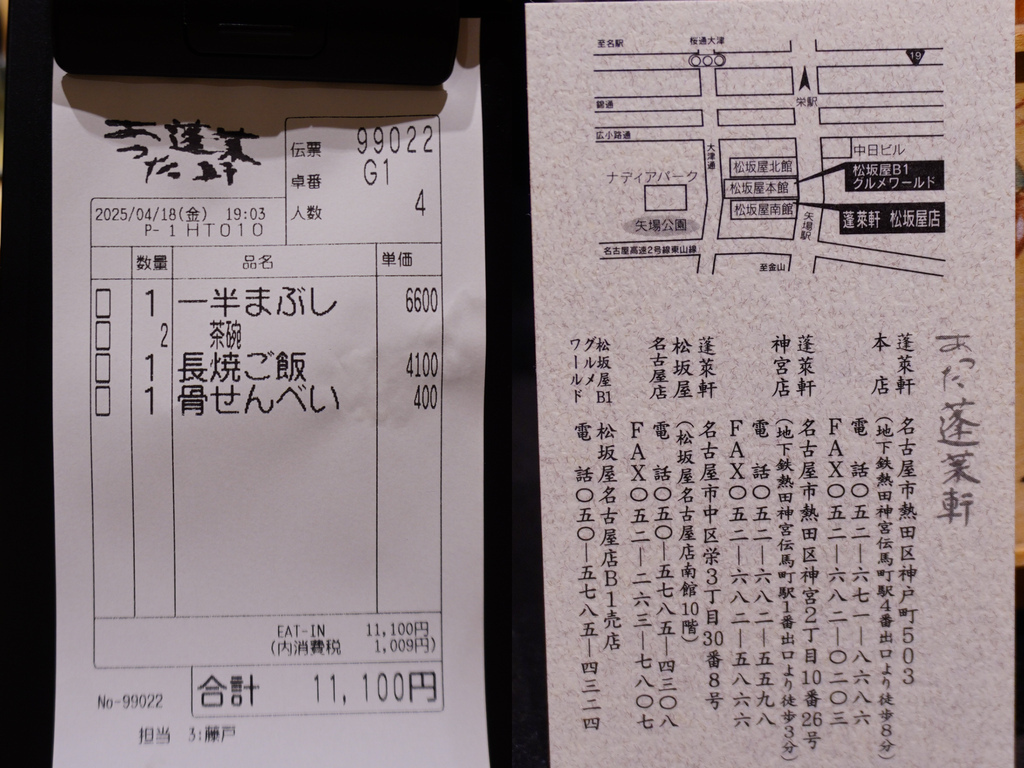 あつた蓬莱軒
伝票 99022
卓番 G1
人数 4
2025/04/18(金) 19:03
P- 1 HT010
数量 品名 単価
1 一半まぶし 6600
2 茶碗
1 長焼ご飯 4100
1 骨せんべい 400
EAT-IN 11,100円
(内消費税 1,009円)
No-99022 合計 11,100円
担当 3:藤戸
至名駅
桜通大津
19
錦通
栄駅
広小路通
大津通
中日ビル
松坂屋北館
松坂屋本館
松坂屋南館
松坂屋B1
グルメワールド
ナディアパーク
矢場公園
蓬莱軒 松坂屋店
矢場駅
名古屋高速2号線東山線
至金山
あつた蓬莱軒
蓬莱軒 名古屋市熱田区神戸町503
本店 (地下鉄熱田神宮伝馬町駅4番出口より徒歩8分)
電 話〇五二―六七一―八六八六
FAX〇五二―六八二―〇二〇三
蓬莱軒 名古屋市熱田区神宮2丁目10番26号
神宮店 (地下鉄熱田神宮伝馬町駅1番出口より徒歩3分)
電 話〇五二―六八二―五五九八
FAX〇五二―六八二―五八六六
蓬莱軒 名古屋市中区栄3丁目30番8号
松坂屋 (松坂屋名古屋店南館10階)
名古屋店 電 話〇五〇―五七八五―四三〇八
FAX〇五二―二六三―七八〇七
松坂屋B1 松坂屋名古屋店B1売店
グルメ
ワールド 電 話〇五〇―五七八五―四三二四